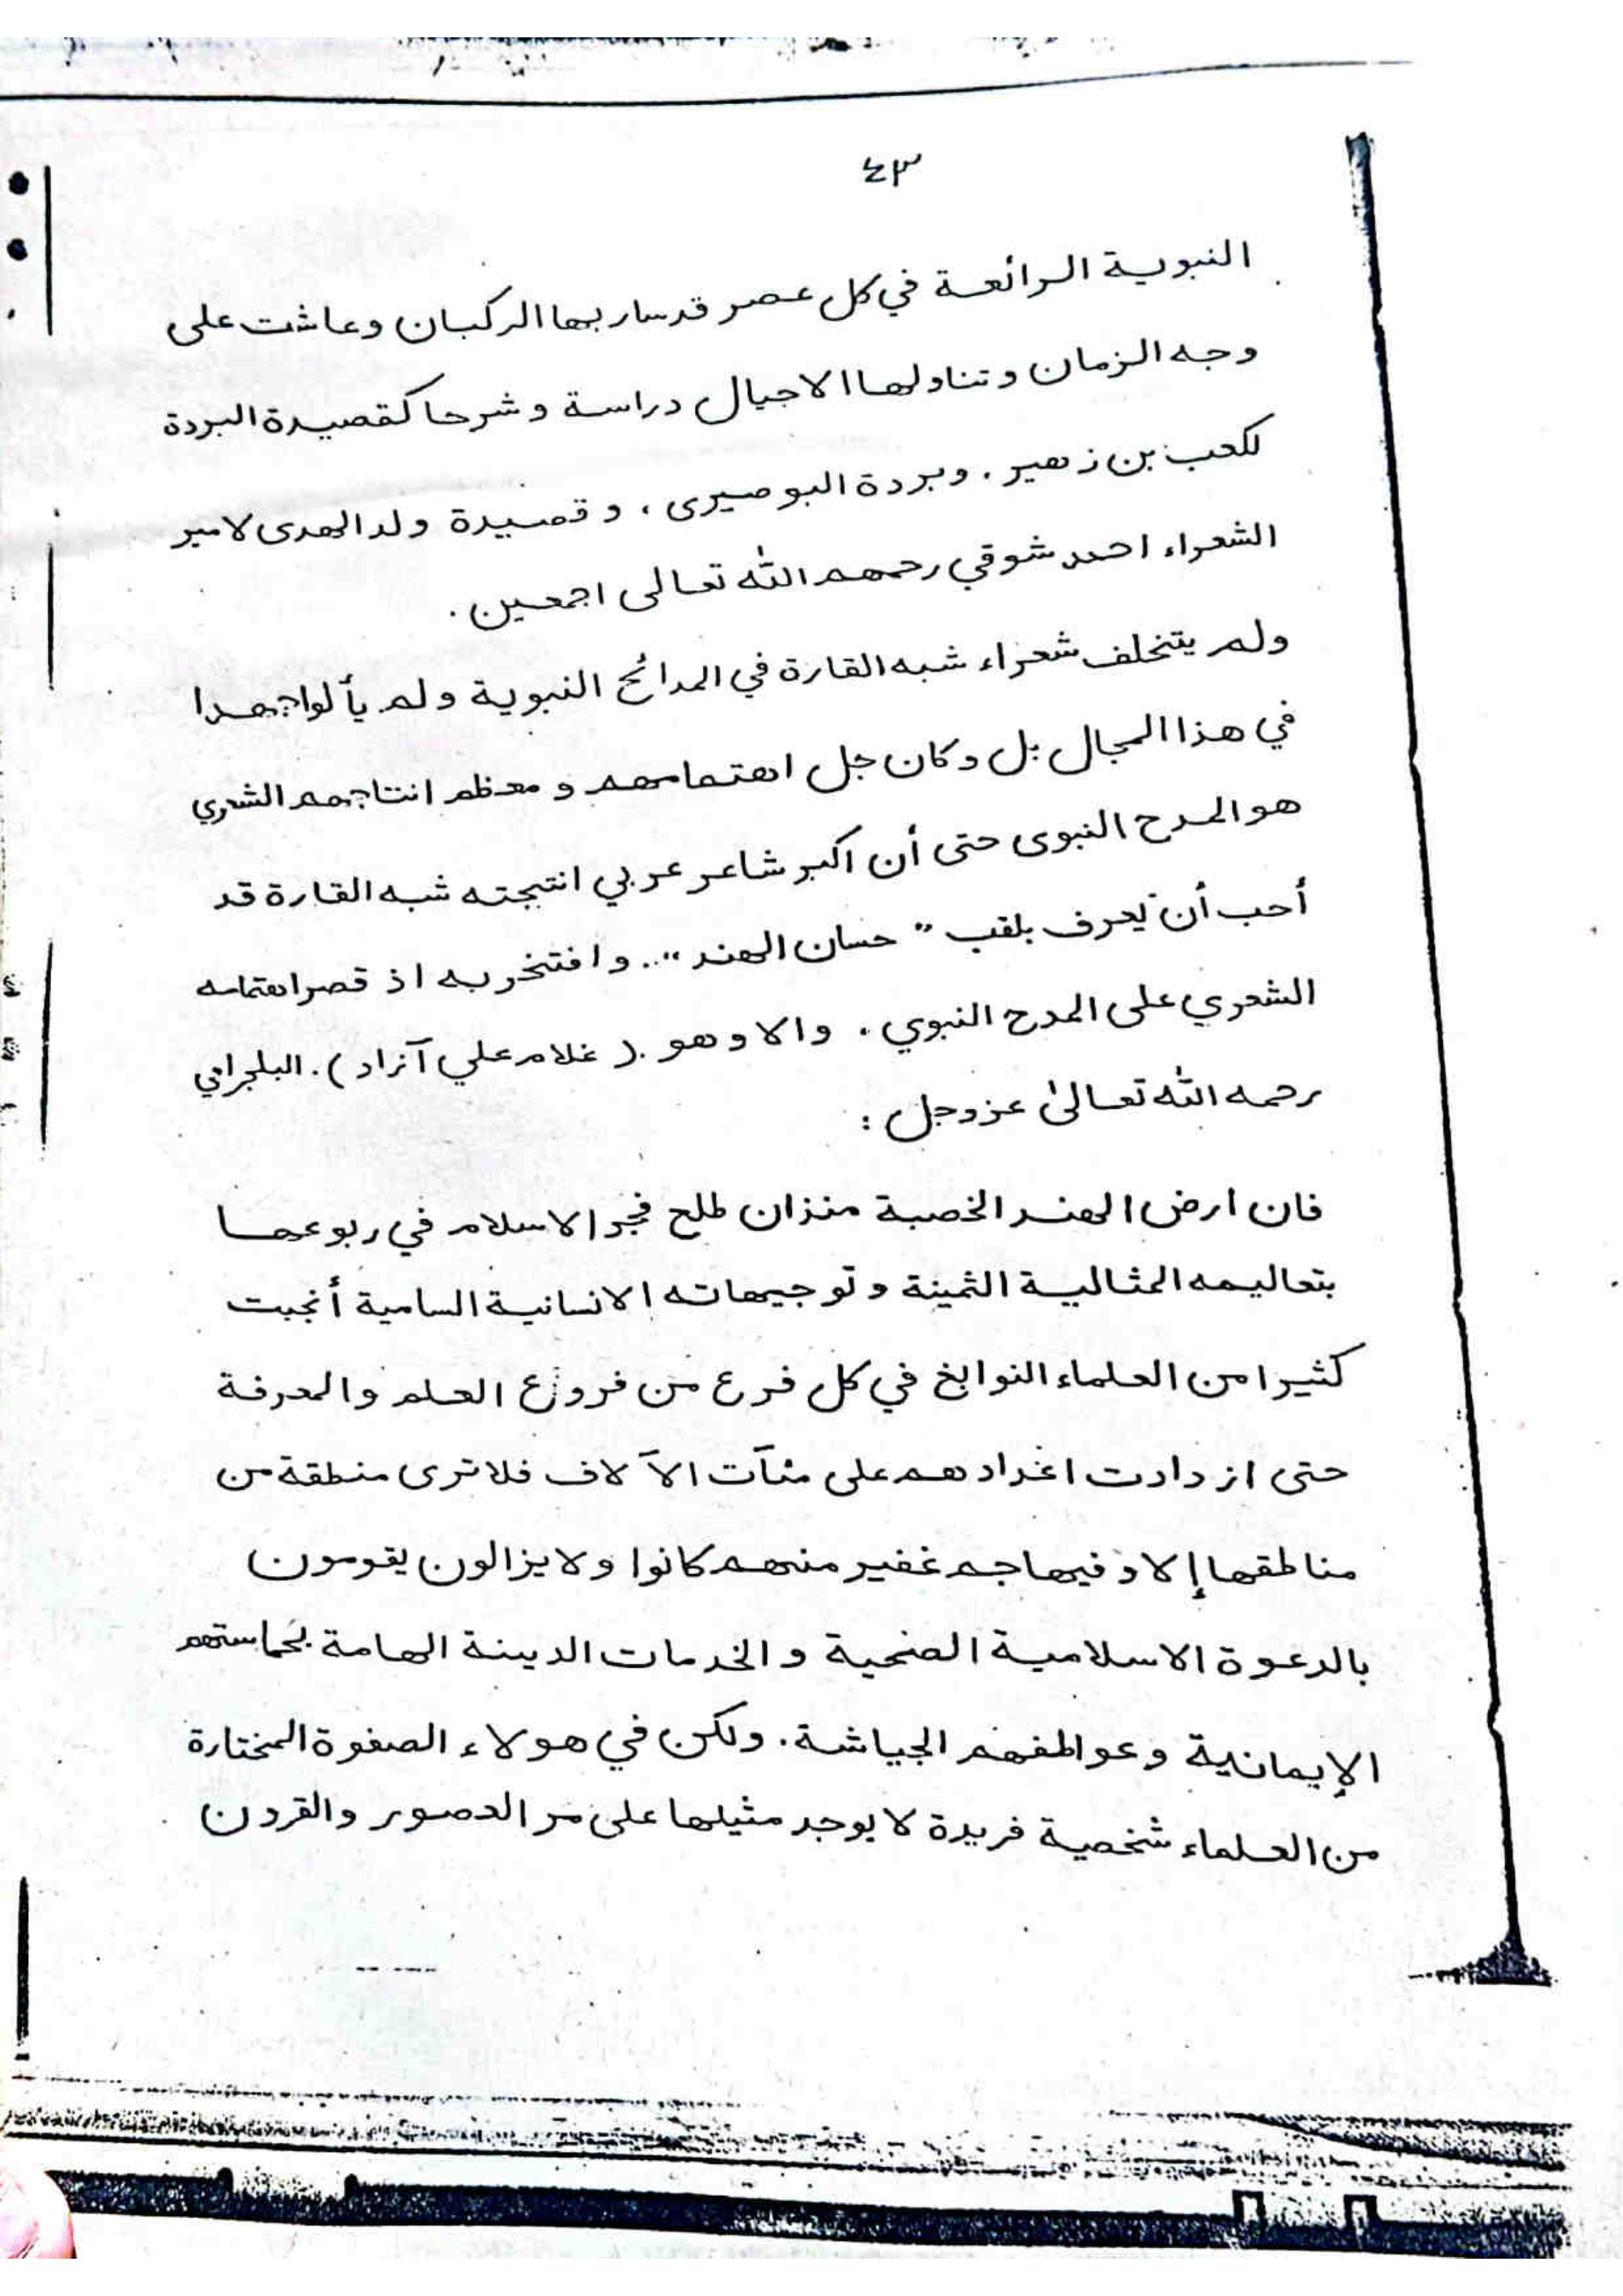 ٤٣
النبوية الرائعة في كل عصر قد سار بها الركبان وعاشت على
وجه الزمان وتناولها الاجيال دراسة وشرحا كقصيدة البردة
لكعب بن زهير . وبردة البوصيرى ، وقصيدة ولد الهدى لامير
الشعراء احمد شوقي رحمهم الله تعالى اجمعين .
ولم يتخلف شعراء شبه القارة في المدائح النبوية ولم يألوا جهدا
في هذا المجال بل وكان جل اهتمامهم و معظم انتاجهم الشعري
هو المدح النبوى حتى أن اكبر شاعر عربي انتجته شبه القارة قد
أحب أن يعرف بلقب " حسان الهند " .. وافتخر به اذ قصر اهتمامه
الشعري على المدح النبوي . والا وهو ( غلام علي آزاد ) . البلجرامي
رحمه الله تعالىٰ عزوجل :
فان ارض الهند الخصبة منذ ان طلع فجر الاسلام في ربوعها
بتعاليمه المثالية الثمينة وتوجيهاته الانسانية السامية أنجبت
كثيرا من العلماء النوابغ في كل فرع من فروع العلم والمعرفة
حتى ازدادت اغدادهم على مئآت الآلاف فلاترى منطقة من
مناطقها إلا وفيها جم غفير منهم كانوا ولايزالون يقومون
بالدعوة الاسلامية الصحية والخدمات الدينة الهامة بحماستهم
الإيمانية وعواطفهم الجياشة . ولكن في هولاء الصفوة المختارة
من العلماء شخصية فريدة لا يوجد مثيلها على مر العصور والقرون